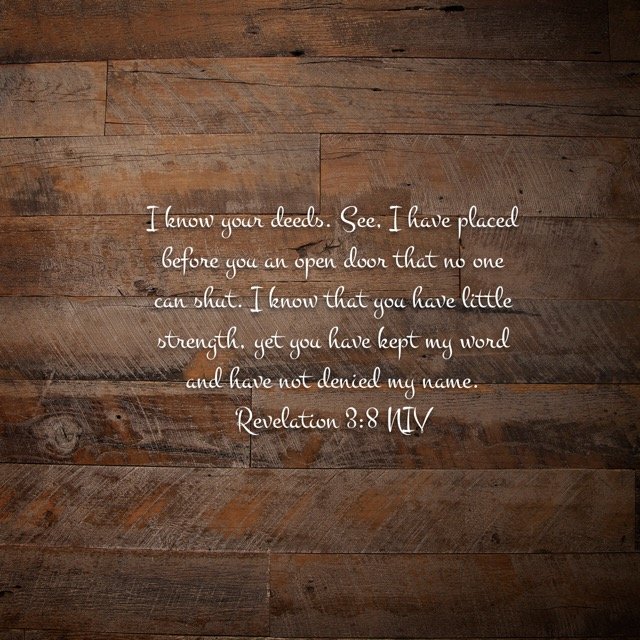 I know your deeds. See, I have placed
before you an open door that no one
can shut. I know that you have little
strength, yet you have kept my word
and have not denied my name.
Revelation 3:8 NIV